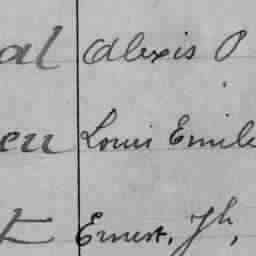 al Alexis O
eu Louis Emile
t Ernest, Jh,